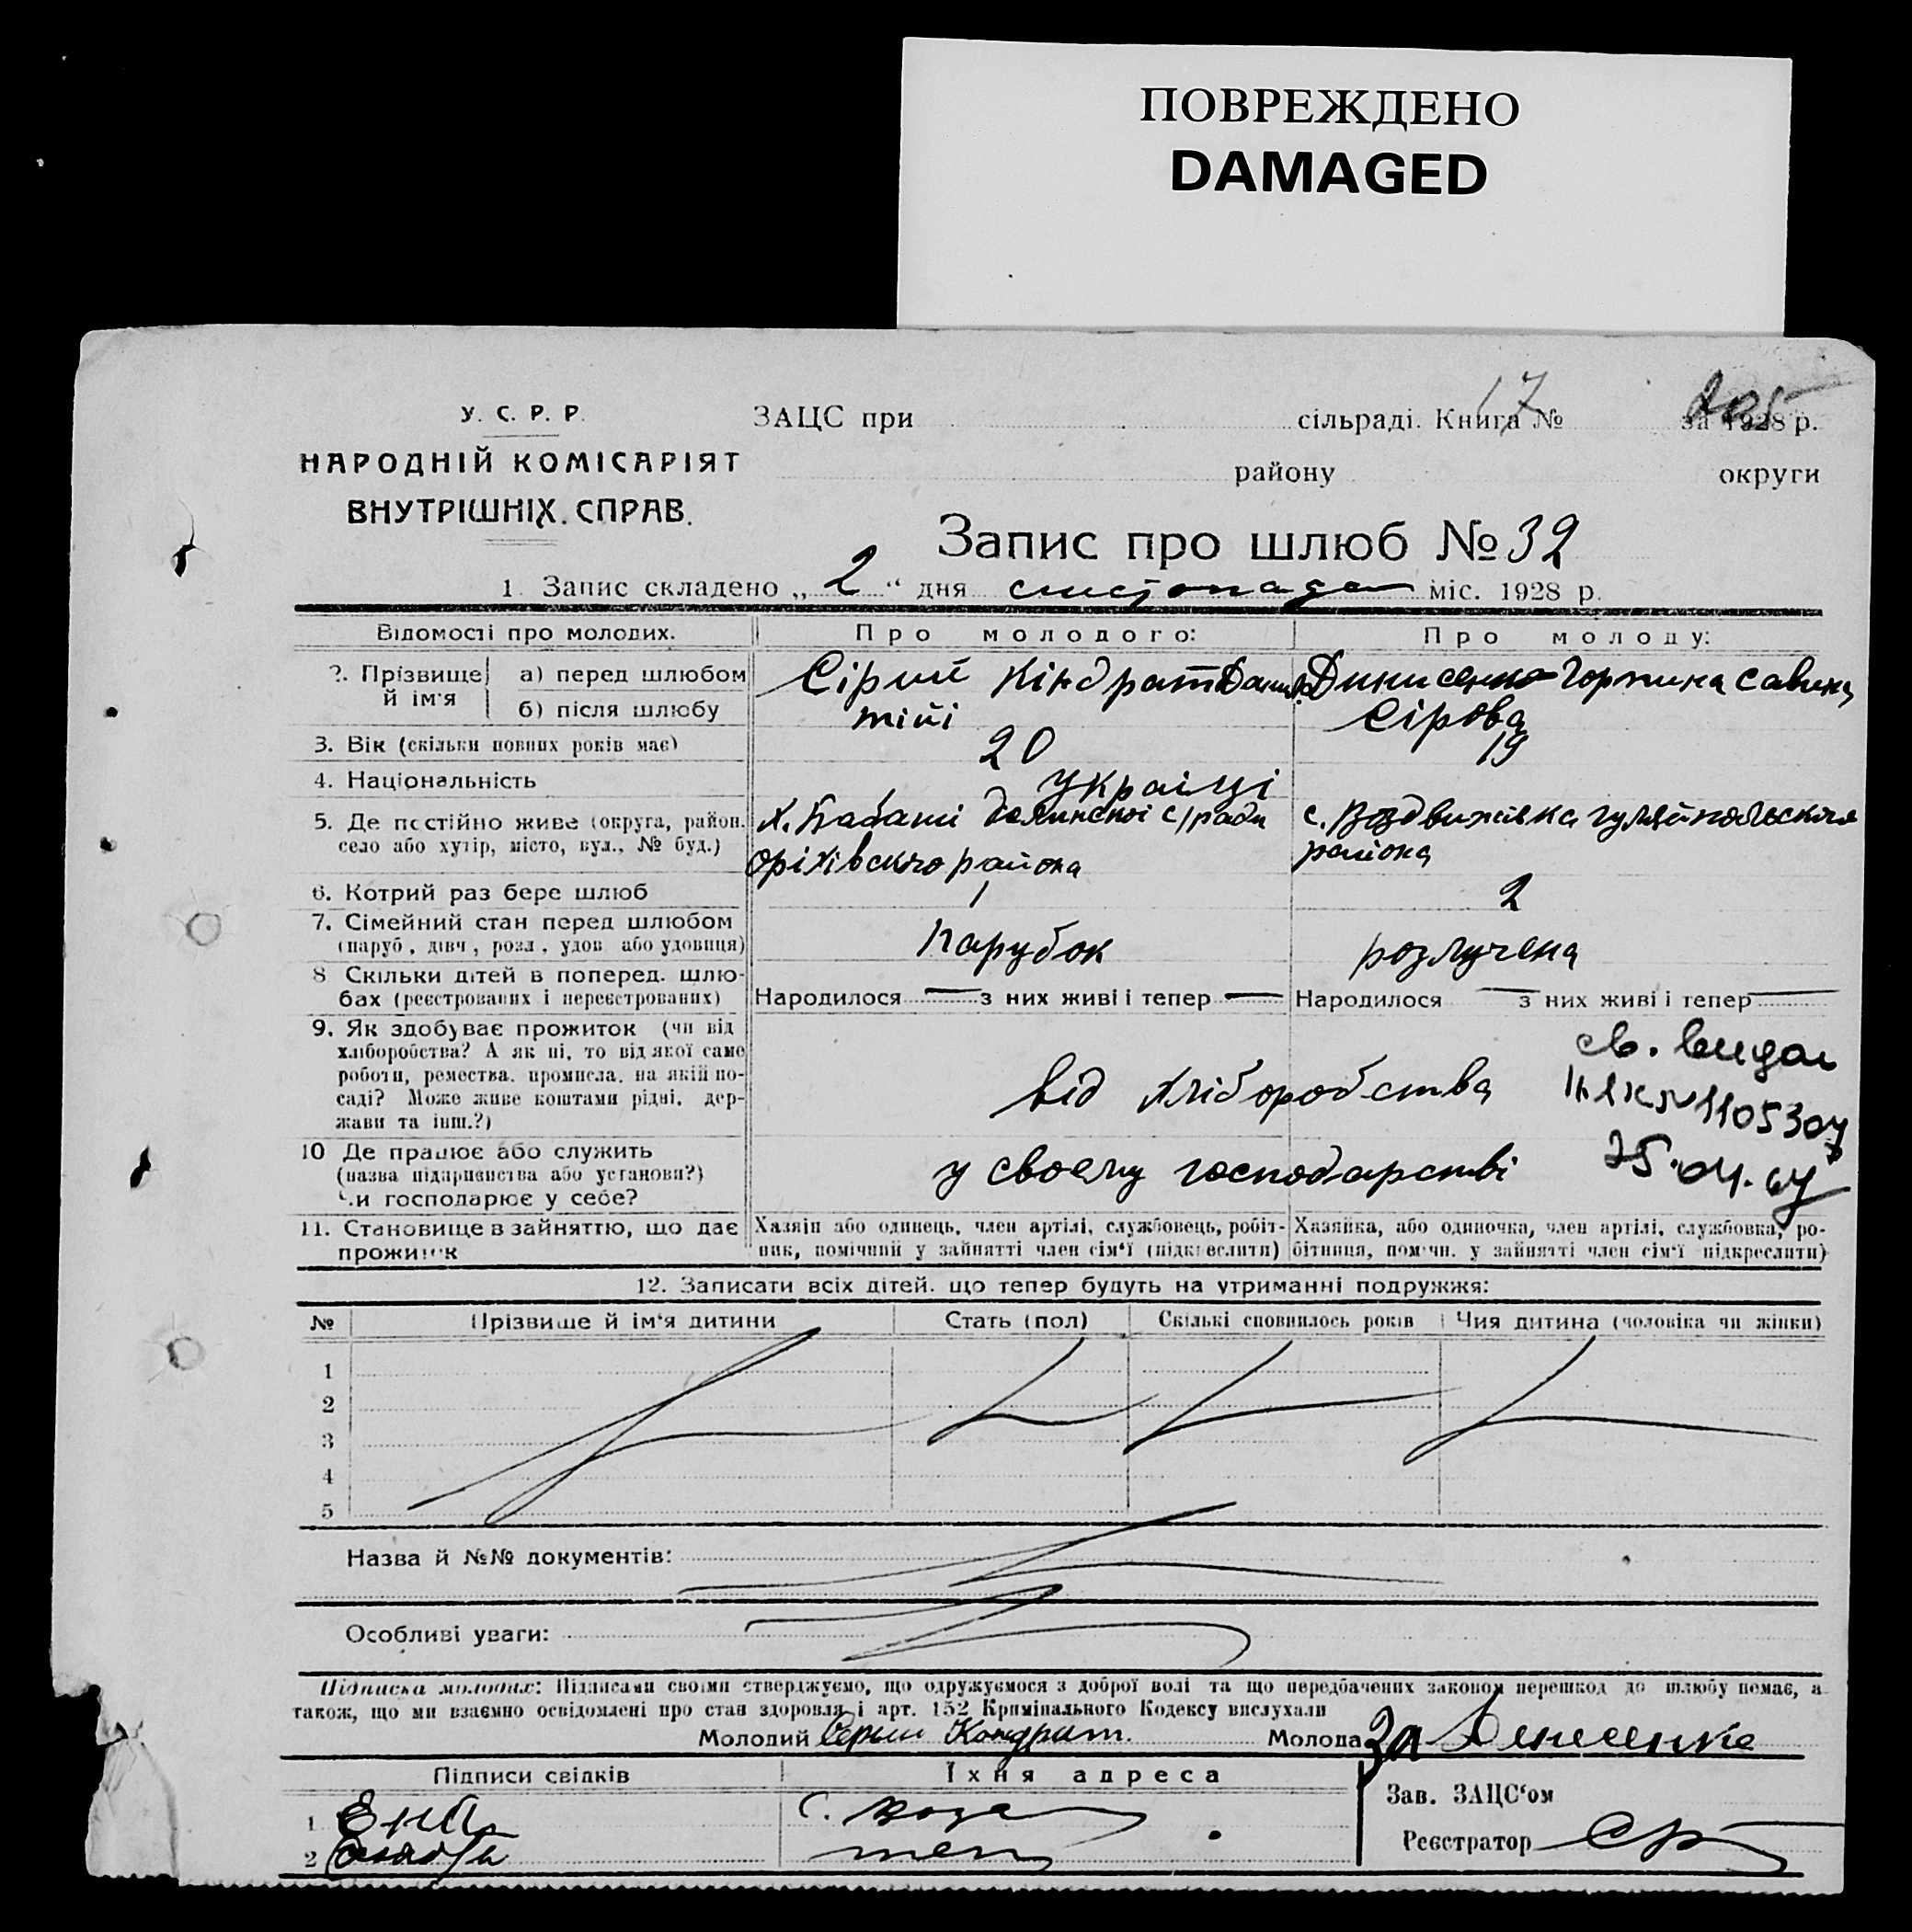 ПОВРЕЖДЕНО
DAMAGED
17
У. С. Р. Р.
НАРОДНІЙ КОМІСАРІЯТ
ВНУТРІШНІХ. СПРАВ.
ЗАЦС при сільраді. Книга № за 1928 р.
району округи
Запис про шлюб № 32
1. Запис складено „ 2 “ дня листопада міс. 1928 р.
Відомості про молодих. Про молодого: Про молоду:
2. Прізвище й ім'я а) перед шлюбом Сірий Кіндрат Динисенко Горпина Савина
б) після шлюбу тіїі Сірова
3. Вік (скільки повних років має) 20 19
4. Національність Українці
5. Де постійно живе (округа, район. х. Кабаші с/ради с. Воздвижівка гуляйпольского
село або хутір, місто, вул., № буд.) Оріхівского района района
6. Котрий раз бере шлюб 1 2
7. Сімейний стан перед шлюбом
(паруб., дівч., розл., удов. або удовиця) парубок розлучена
8 Скільки дітей в поперед. шлю-
бах (реєстрованих і нереєстрованих) Народилося — з них живі і тепер — Народилося — з них живі і тепер —
9. Як здобуває прожиток (чи від
хліборобства? А як ні, то від якої само
роботи, ремества. промисла. на якій по-
саді? Може живе коштами рідні, дер-
жави та інш.?)
від хліборобства
св. видан
№1105307
25.04.67
10 Де працює або служить
(назва підприємства або установи?)
Чи господарює у себе?
у своєму господарстві
11. Становище в зайняттю, що дає
прожиток
Хазяїн або одинець, член артілі, службовець, робіт-
ник, помічний у зайнятті член сім'ї (підкреслити)
Хазяйка, або одиночка, член артілі, службовка, ро-
бітниця, помічн. у зайнятті член сім'ї підкреслити)
12. Записати всіх дітей. що тепер будуть на утриманні подружжя:
№ Прізвище й ім'я дитини Стать (пол) Скількі сповнилось років Чия дитина (чоловіка чи жінки)
1
2
3
4
5
Назва й №№ документів:
Особливі уваги:
Підписка молодих: Підписами своїми стверджуємо, що одружуємося з доброї волі та що передбачених законом перешкод до шлюбу немає, а
також, що ми взаємно освідомлені про стан здоровля і арт. 152 Кримінального Кодексу вислухали
Молодий Серый Кондрат. Молода За Денесенко
Підписи свідків Їхня адреса
1
2
Зав. ЗАЦС'ом
Реєстратор